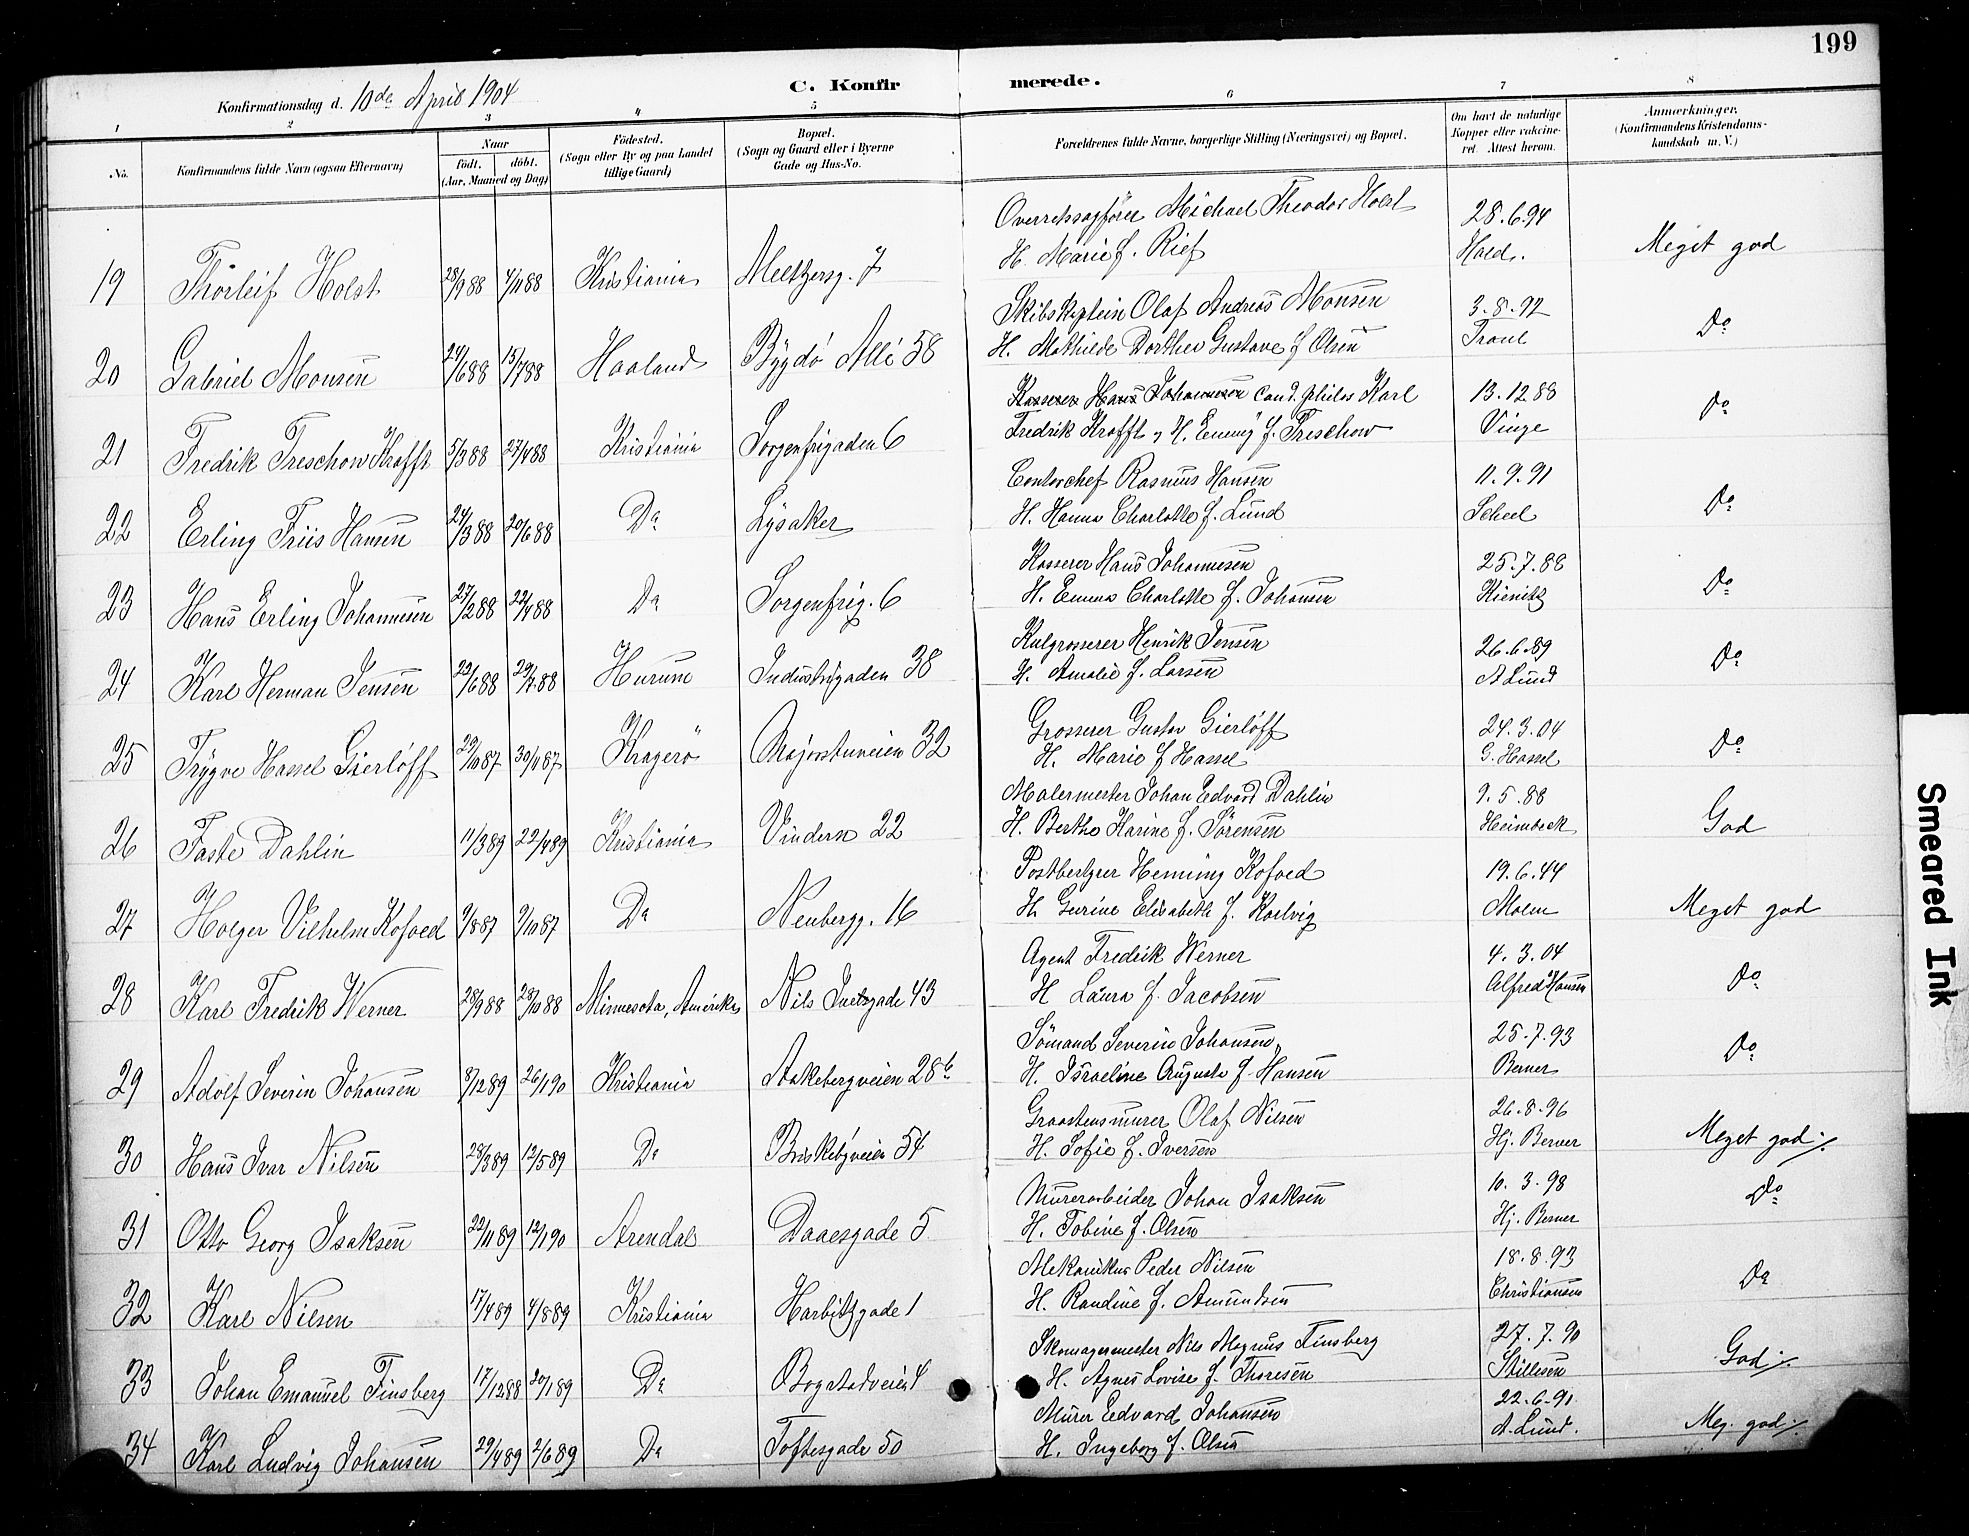 199
C. Konfirmerede.
Konfirmationsdag d. 10de April 1904
1 2 3 4 5 6 7 8
No. Konfirmandens fulde Navn (ogsaa Efternavn) Naar født. døbt. (Aar, Maaned og Dag) Fødested. (Sogn eller By og paa Landet tillige Gaard) Bopæl. (Sogn og Gaard eller i Byerne Gade og Hus-No. Forældrenes fulde Navne, borgerlige Stilling (Næringsvei) og Bopæl. Om havt de naturlige Kopper eller vakcineret. Attest herom. Anmærkninger. (Konfirmandens Kristendomskundskab m. V.)
19 Thorleif Holst 28/9 88 4/11 88 Kristiania Meltzersg. 7 Overretssagfører Michael Theodor Holst 28.6.94
H. Marie f. Rief Hald. Meget god
20 Gabriel Monsen 24/6 88 15/7 88 Haaland Bygdø Allé 58 Skibskaptein Olaf Andreas Monsen 3.8.92
H. Mathilde Dorthea Gustave f Olsen Do
21 Fredrik Treschow Krafft 5/3 88 27/4 88 Kristiania Sorgenfrigaden 6 Kasserer Hans Johannesen Cand. philos Karl 13.12.88
Fredrik Krafft, H. Emmy f. Treschow Vinge Do
22 Erling Friis Hansen 24/3 88 20/6 88 Do Lysaker Contorchef Rasmus Hansen 11.9.91
H. Hanna Charlotte f. Lund Scheel Do
23 Hans Erling Johannesen 27/2 88 22/4 88 Do Sorgenfrig. 6 Kasserer Hans Johannesen 25.7.88
H. Emma Charlotte f. Johansen Kienitz Do
24 Karl Herman Jensen 22/6 88 29/7 88 Hurum Industrigaden 38 Kulgrosserer Henrik Jensen 26.6.89
H. Amalie f. Larsen A Lund Do
25 Trygve Hassel Gierløff 29/10 87 30/11 87 Kragerö Majorstuveien 32 Grosserer Gustav Gierløff 24.3.04
H. Marie f Hassel G. Hassel Do
26 Faste Dahlin 11/3 89 22/4 89 Kristiania Vindern 22 Malermester Johan Edvard Dahlin 9.5.88
H. Berthe Karine f. Sørensen Heimbeck God
27 Holger Vilhelm Kofoed 9/8 87 9/10 87 Do Neubergg. 16 Postbetjent Henning Kofoed 19.6.44
H. Gurine Elisabeth f. Malm Meget god
28 Karl Fredrik Werner 28/9 88 28/10 88 Minnesota, Amerika Nils Juelsgade 43 Agent Fredrik Werner 4.3.04
H Laura f. Jacobsen Alfred Hansen Do
29 Adolf Severin Johansen 8/12 89 26/1 90 Kristiania Aakebergveien 28b Sömand Severin Johansen, 25.7.93
H. Israeline Augusta f. Hansen Berner Do
30 Hans Ivar Nilsen 28/3 89 12/5 89 Do Briskebyveien 54 Graastensmurer Olaf Nilsen 26.8.96
H. Sofie f. Iversen Hj. Berner Meget god
31 Otto Georg Isaksen 22/11 89 12/1 90 Arendal Daaesgade 5 Murerarbeider Johan Isaksen 10.3.98
H. Tobine f. Olsen Hj. Berner Do
32 Karl Nilsen 17/4 89 4/8 89 Kristiania Harbitzgade 1 Mekanikus Peder Nilsen 18.8.93
H. Randine f. Amundsen Christiansen Do
33 Johan Emanuel Finsberg 17/12 88 20/1 89 Do Bogstadveien 4 Skomagermester Nils Magnus Finsberg 27.7.90
H. Agnes Lovise f. Thoresen Stillesen God
34 Karl Ludvig Johansen 29/4 89 2/6 89 Do Toftesgade 50 Murer Edvard Johansen 22.6.91
H. Ingeborg f. Olsen A. Lund. Meg. god
Smeared Ink